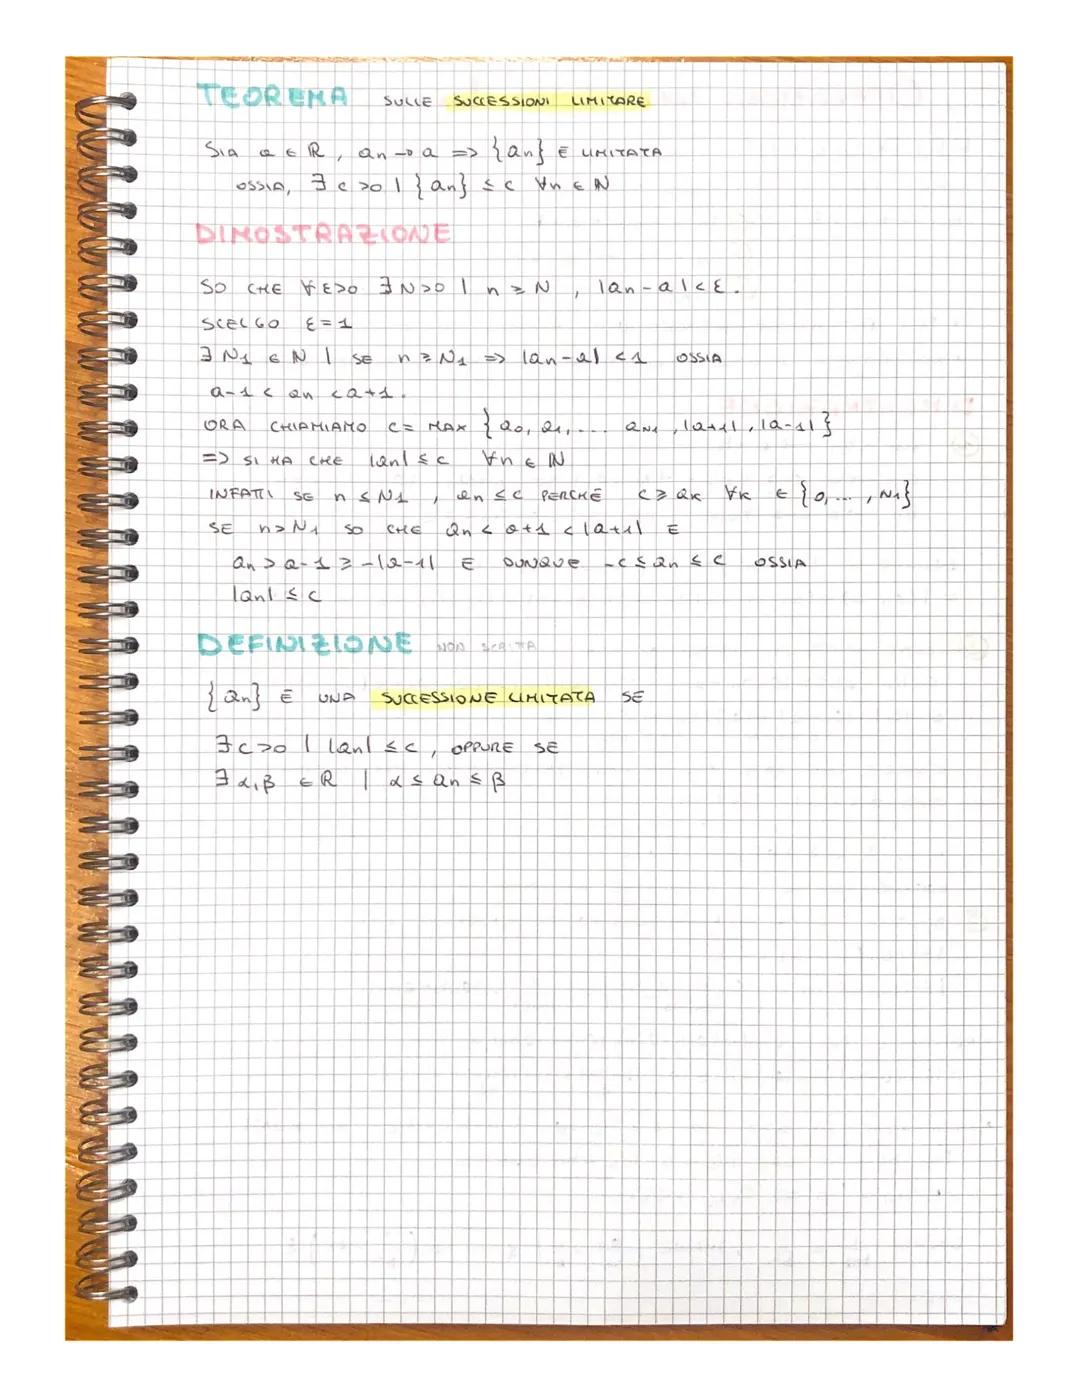 TEOREMA SULLE SUCCESSIONI LIMITARE
SIA a ∈ R, an → a => {an} E LIMITATA
OSSIA, ∃ c >0 | {an} ≤ c ∀n ∈ N
DIMOSTRAZIONE
SO CHE ∀ε>0 ∃N>0 | n ≥ N, |an-a|<ε.
SCELGO ε=1
∃ N1 ∈ N | SE n ≥ N1 => |an-a| <1 OSSIA
a-1 < an < a+1.
ORA CHIAMIAMO C= MAX {a0, a1, ... aN1, |a+1|, |a-1|}
=> SI HA CHE |an| ≤ c ∀n ∈ N
INFATTI SE n ≤ N1, an ≤ c PERCHÉ c ≥ ak ∀k ∈ {0, ..., N1}
SE n>N1 SO CHE an < a+1 < |a+1| E
an > a-1 ≥ -|a-1| E DUNQUE -c ≤ an ≤ c OSSIA
|an| ≤ c
DEFINIZIONE NON SCRITTA
{an} E UNA SUCCESSIONE LIMITATA SE
∃c>0 | |an| ≤ c, OPPURE SE
∃ α,β ∈ R | α ≤ an ≤ β